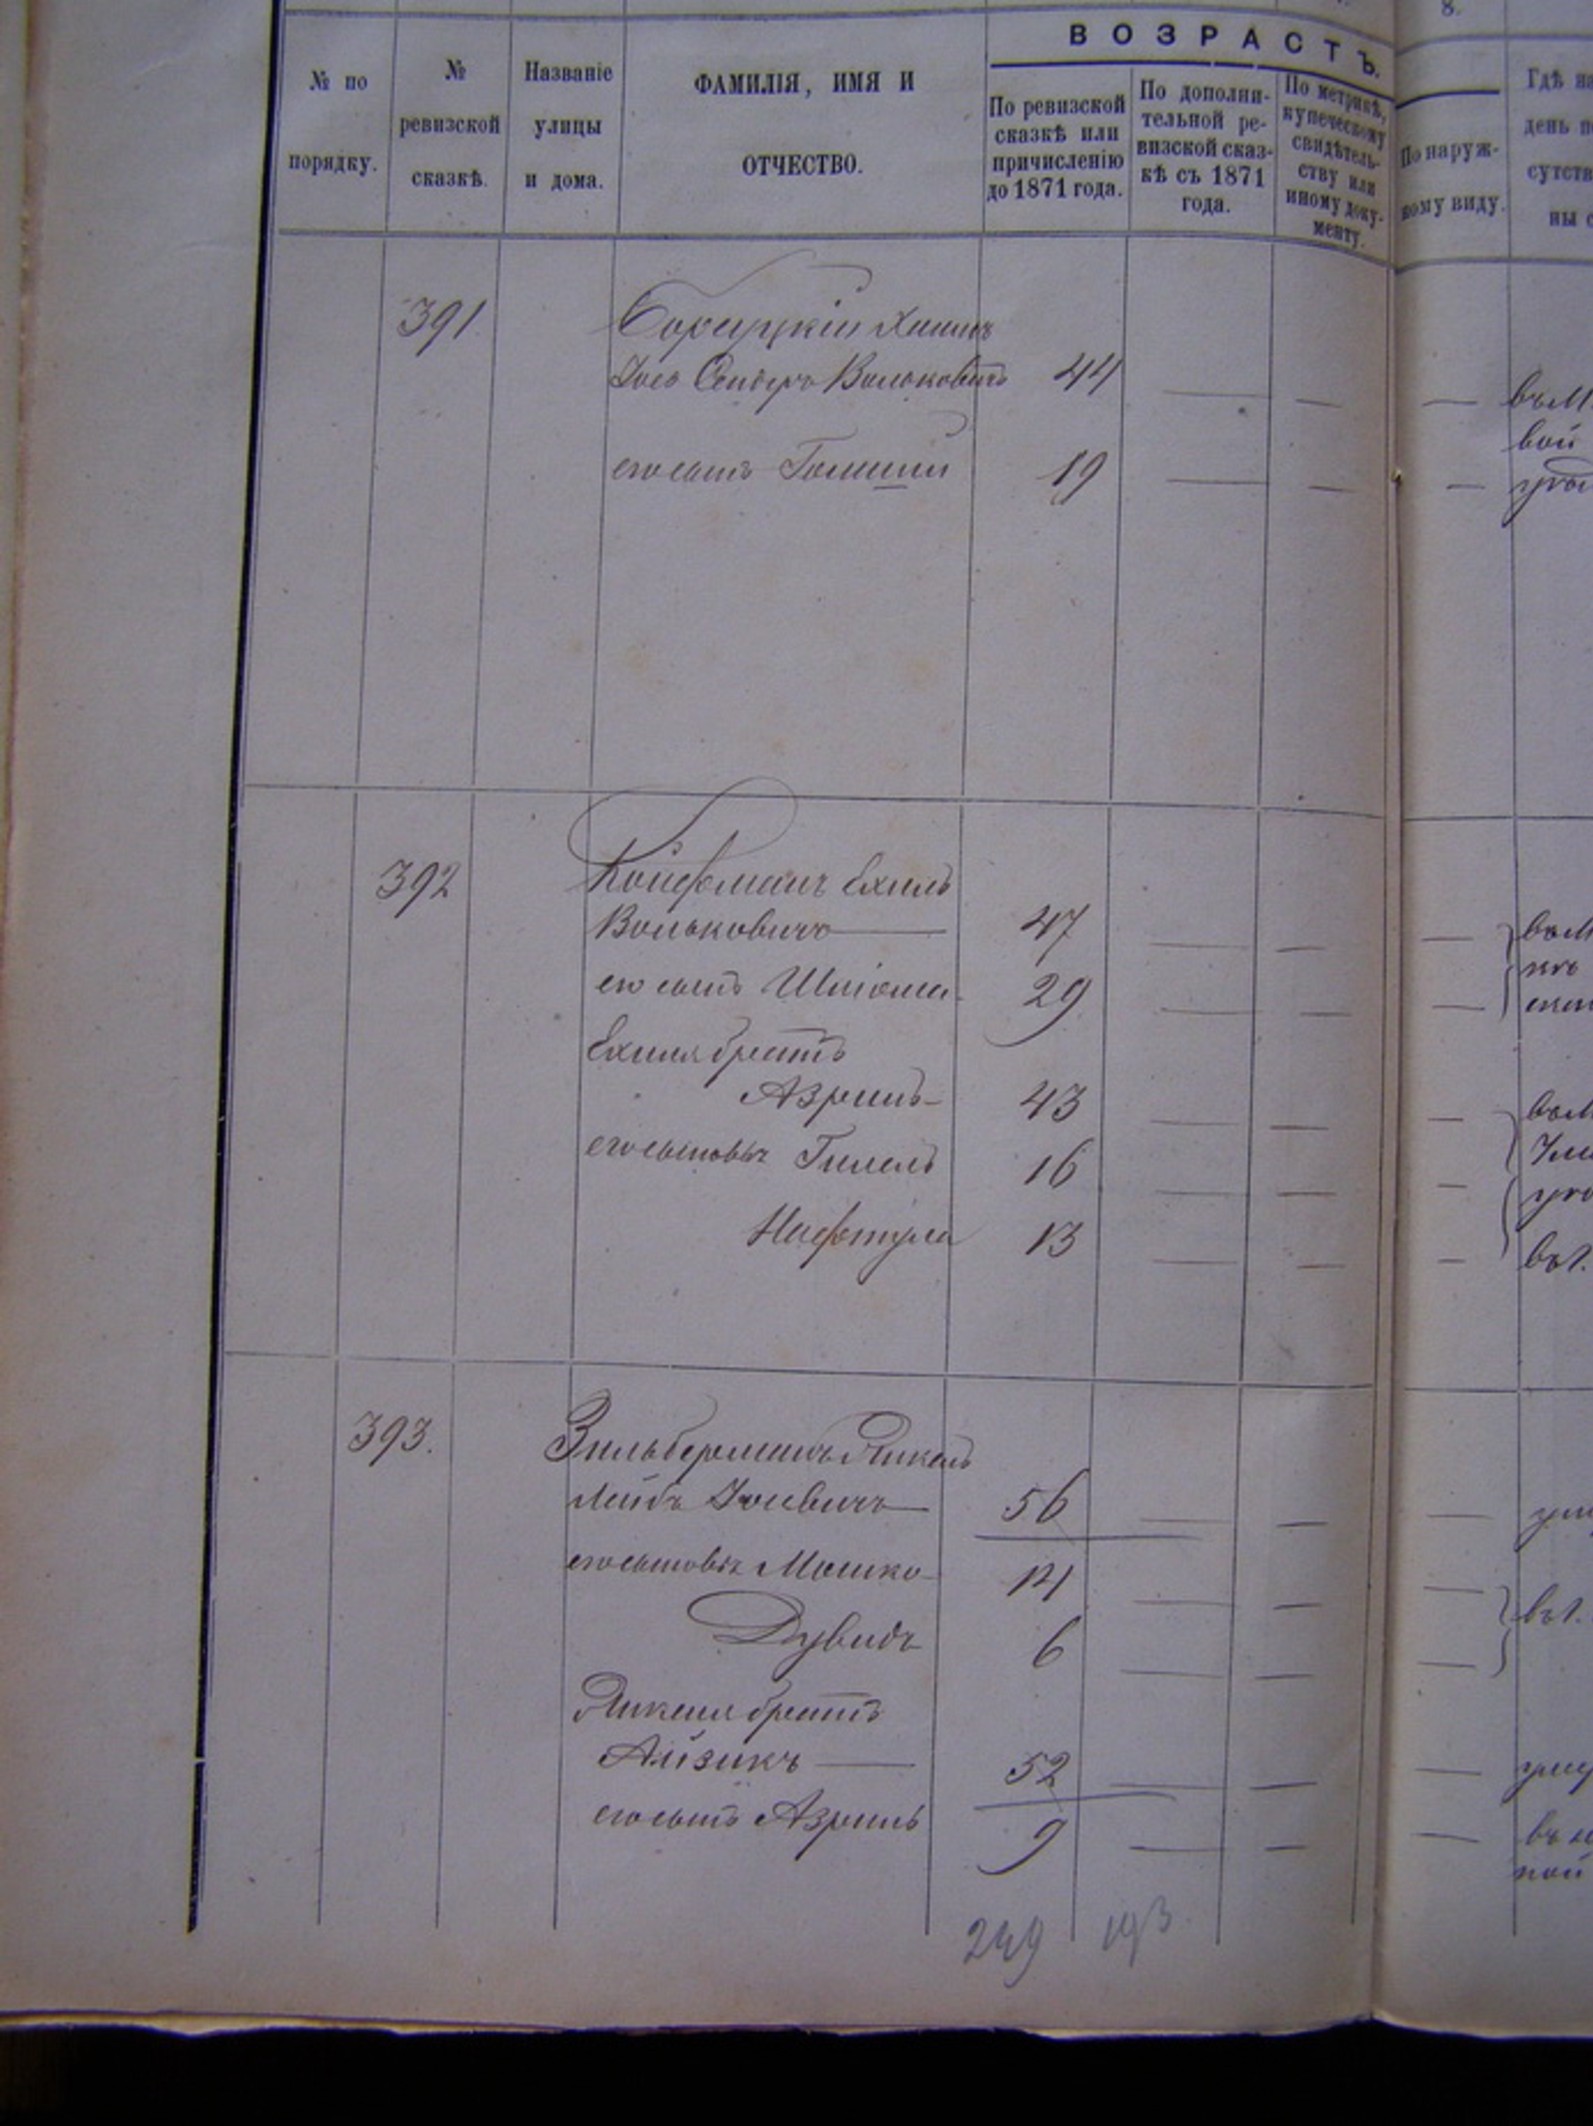 8.
№ по порядку.
№ ревизской сказкѣ.
Названіе улицы и дома.
ФАМИЛІЯ, ИМЯ И ОТЧЕСТВО.
ВОЗРАСТЪ.
По ревизской сказкѣ или причисленію до 1871 года.
По дополнительной ревизской сказкѣ съ 1871 года.
По метрикѣ, купеческому свидѣтельству или иному документу.
По наружному виду.
Гдѣ на
день п
сутств
ны с
391.
Хаимъ
Іось Сендеръ Вольковичъ 44 — — —
его сынъ 19 — — —
вой
392
Койфманъ Ехиль
Вольковичъ — 47 — — —
его сынъ Шліома 29 — — —
Ехиля братъ
Азриль 43 — — —
его сыновья Гилель 16 — — —
Нафтула 13 — — —
393.
Зильберманъ Янкель
Лейбъ Іосевичъ — 56 — — —
его сыновья Мошко 14 — — —
Дувидъ 6 — — —
Янкеля братъ
Айзикъ — 52 — — —
его сынъ Азриль 9 — — —
249